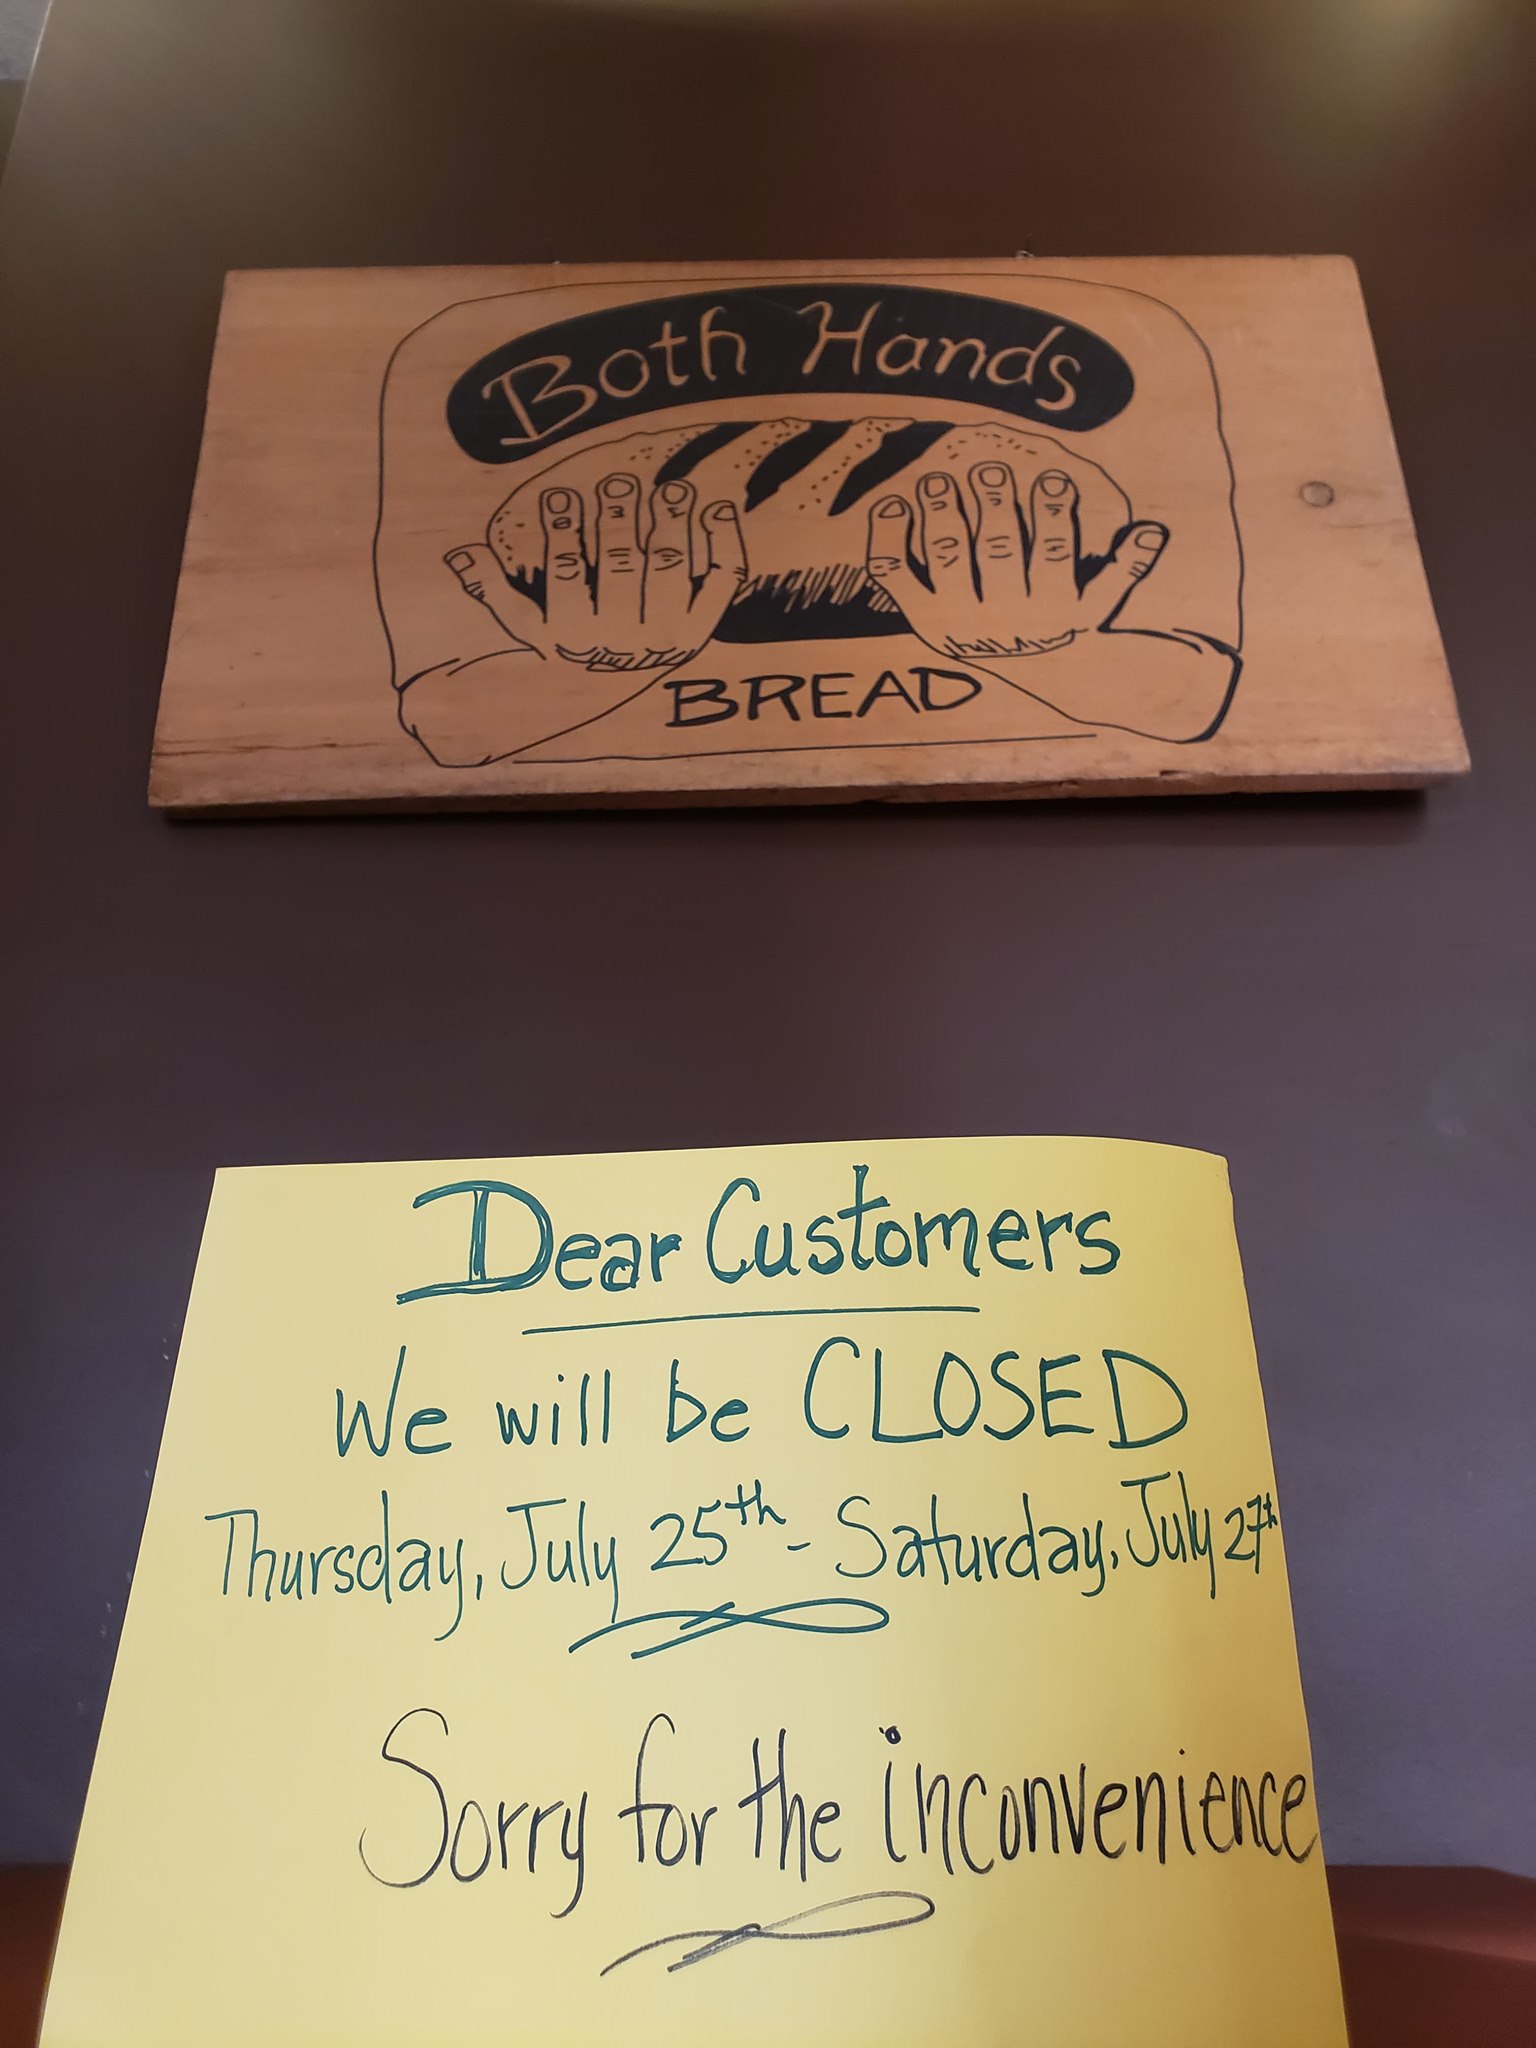 Both Hands
BREAD
Dear Customers
We will be CLOSED
Thursday, July 25th - Saturday, July 27th
Sorry for the inconvenience